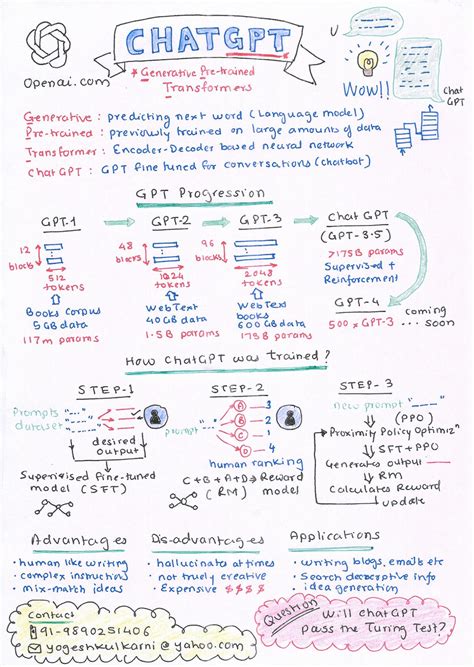 CHATGPT
Openai.com
* Generative Pre-trained
Transformers
U
Wow!!
Chat
GPT
Generative : predicting next word (Language model)
Pre-trained : previously trained on large amounts of data
Transformer : Encoder-Decoder based neural network
Chat GPT : GPT fine tuned for conversations (chatbot)
GPT Progression
GPT-1
GPT-2
GPT-3
Chat GPT
(GPT-3.5)
12
blocks
512
tokens
48
blocks
1024
tokens
96
blocks
2048
tokens
>175B params
Supervised +
Reinforcement
Books Corpus
5GB data
117m params
WebText
40GB data
1.5B params
WebText
books
600GB data
175B params
GPT-4
500 x GPT-3
coming
... soon
How ChatGPT was trained?
STEP-1
Prompts
dataset
desired
output
Supervised fine-tuned
model (SFT)
STEP-2
prompt
A
B
C
D
3
2
1
4
human ranking
C + B + A + D → Reward
(RM) model
STEP-3
new prompt
(PPO)
Proximity Policy Optimizⁿ
SFT + PPO
Generates output
RM
Calculates Reward
update
Advantages
• human like writing
• complex instructns
• mix-match ideas
Dis-advantages
• hallucinate at times
• not truely creative
• Expensive $$$$
Applications
• writing blogs, emails etc
• Search descreptive info
• idea generation
Contact
91-9890251406
yogeshkulkarni@yahoo.com
Question
Will chatGPT
pass the Turing Test?